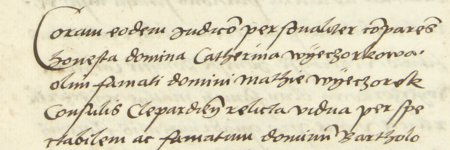 Coram eodem Iudicō personaliter cōpareñs
honesta domina Catherina wyechorkowa
olim famati domini Mathie wyechorek
Consulis Clepardieñ relicta vidua per spe
ctabilem ac famatum dominū Bartholo